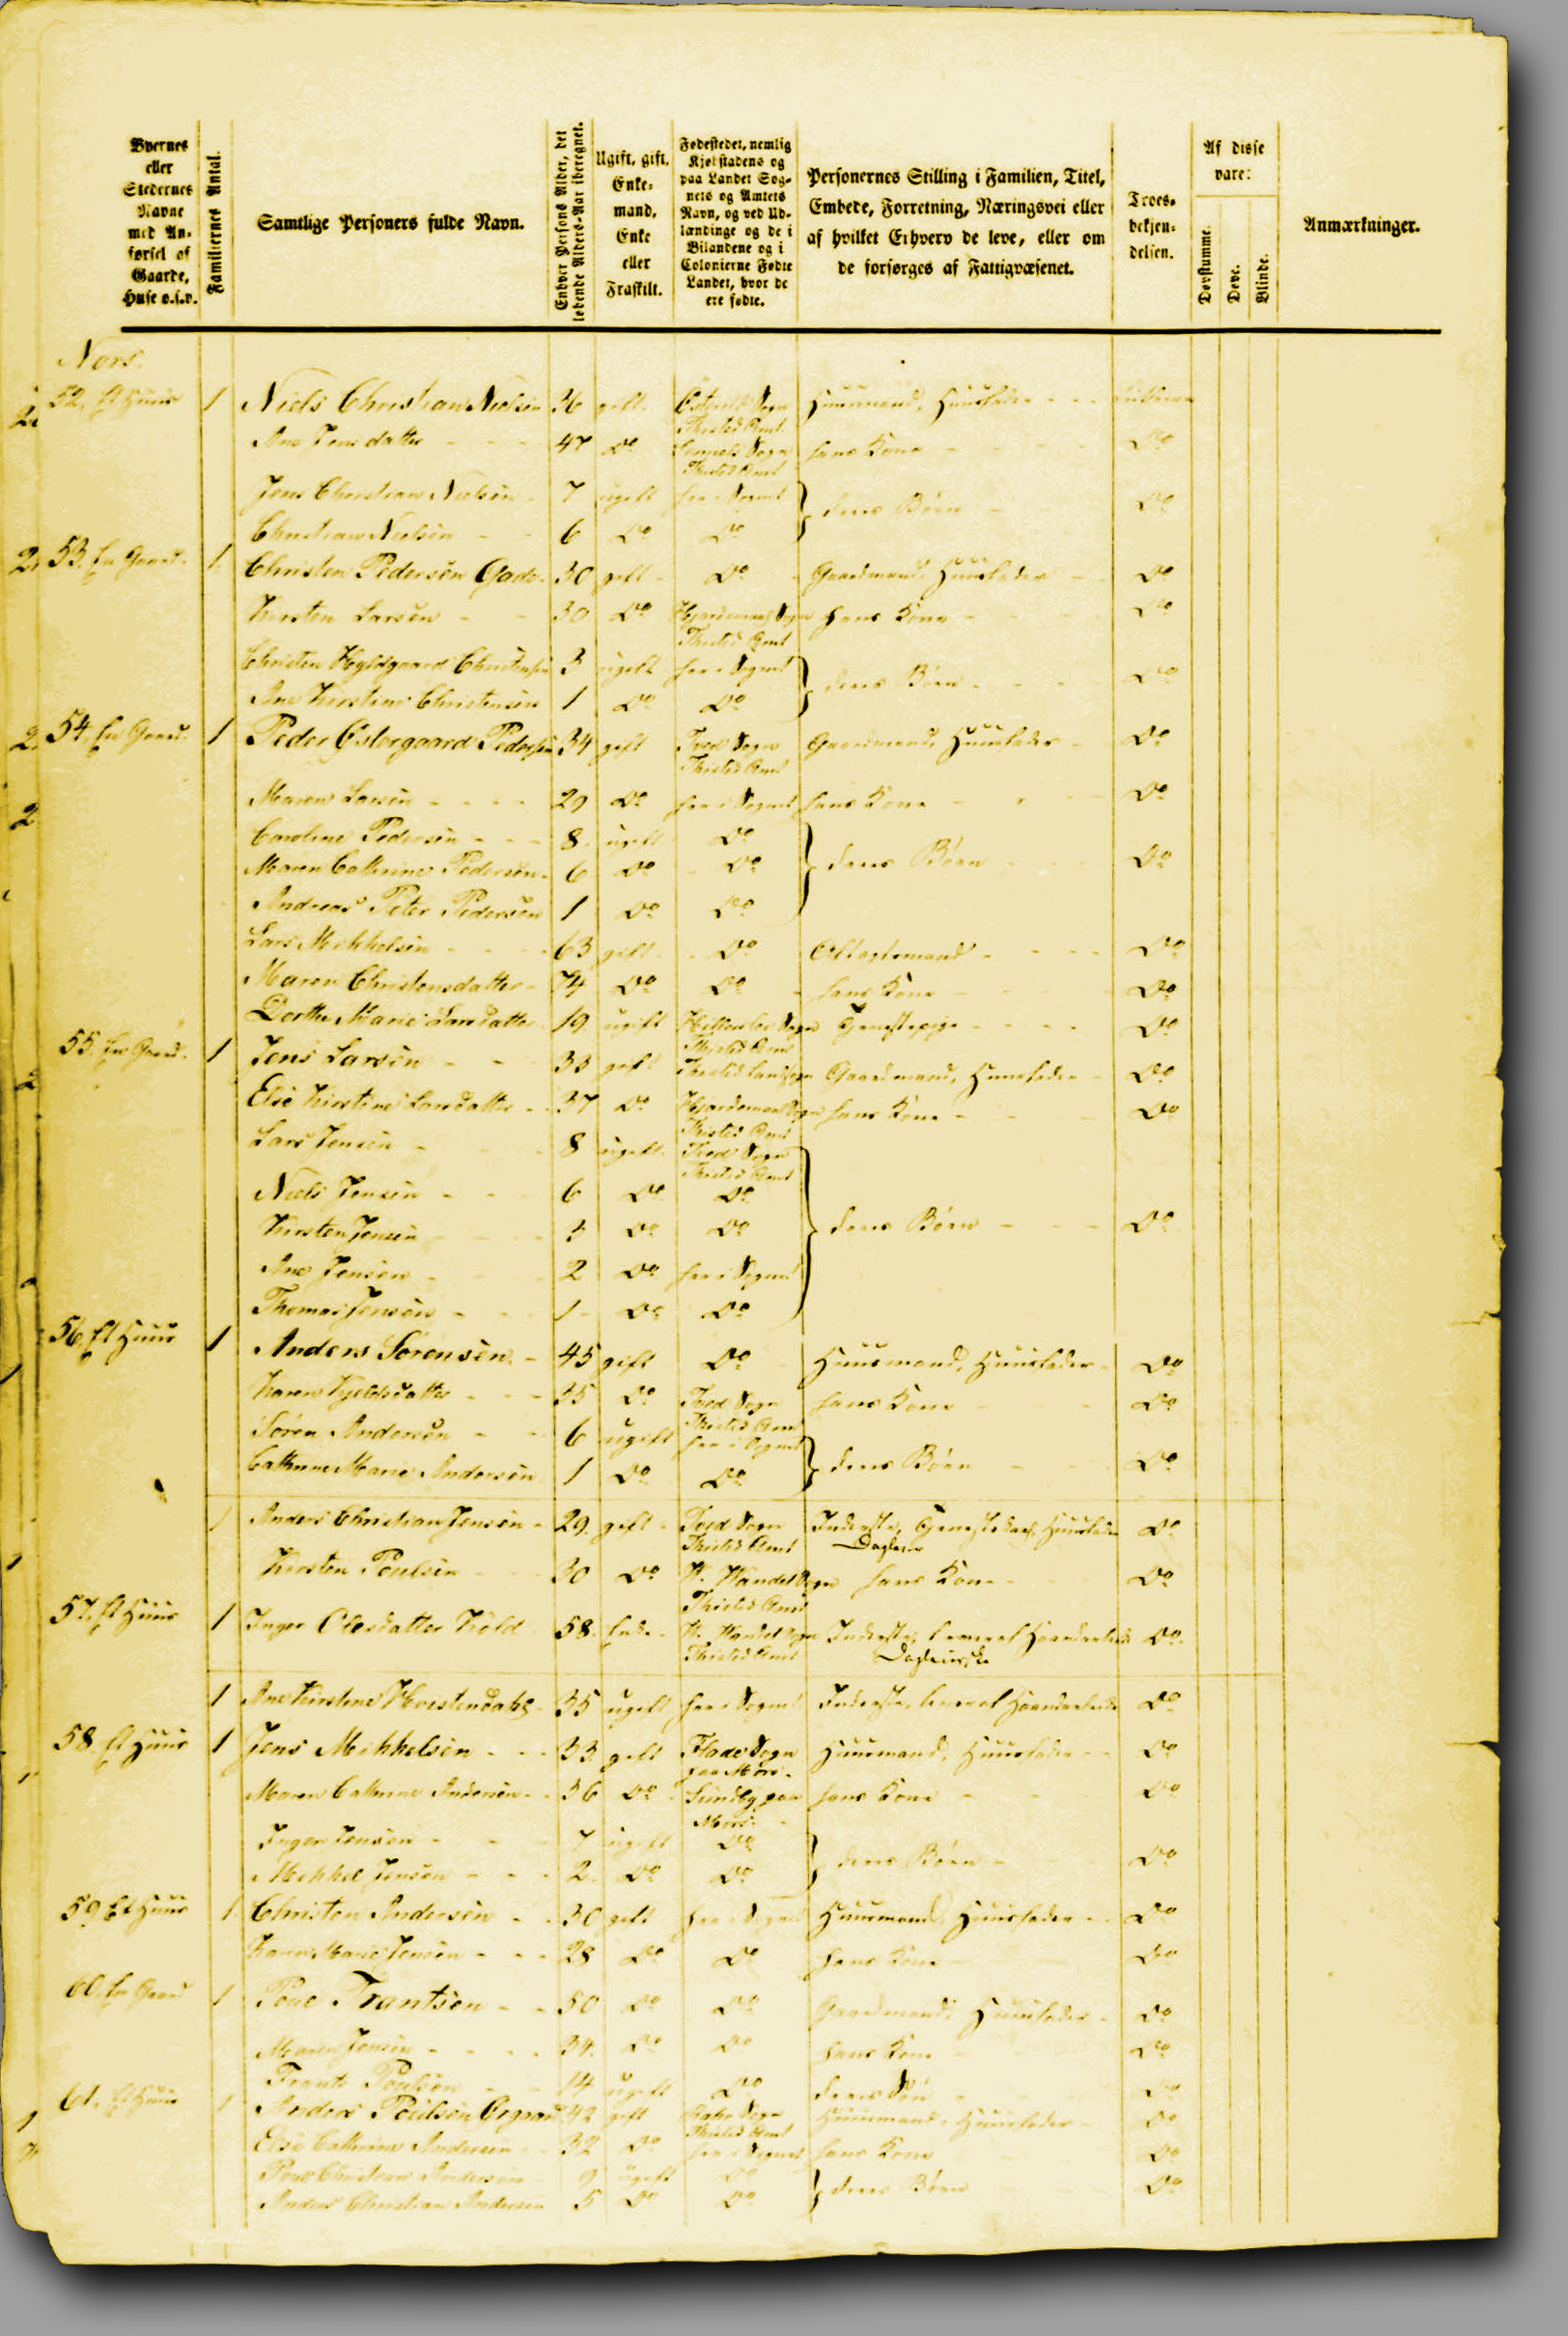 Byernes eller Stedernes Navne med Anførsel af Gaarde, Huse o.s.v.
Familiernes Antal.
Samtlige Personers fulde Navn.
Enhver Persons Alder, det løbende Alders-Aar iberegnet.
Ugift, gift, Enkemand, Enke eller Fraskilt.
Fødestedet, nemlig Kjøbstadens og paa Landet Sognets og Amtets Navn, og ved Udlændinge og de i Bilandene og i Colonierne Fødte Landet, hvor de ere fødte.
Personernes Stilling i Familien, Titel, Embede, Forretning, Næringsvei eller af hvilket Erhverv de leve, eller om de forsørges af Fattigvæsenet.
Troesbekjendelsen.
Af disse vare:
Døvstumme.
Døve.
Blinde.
Anmærkninger.
Nors.
52. Et Huus 1 Niels Christian Nielsen 36 gift Sogn Huusmand, Huusfader
Thisted Amt
Ane Jensdatter 47 Do Sogn hans Kone Do
Thisted Amt
Jens Christian Nielsen 7 ugift her i Sognet } deres Børn Do
Christian Nielsen 6 Do Do
53. En Gaard 1 Christen Pedersen Gade 30 gift Do Gaardmand, Huusfader Do
Kirsten Larsen 30 Do Hjardemaal Sogn hans Kone Do
Thisted Amt
Christen Hyldgaard Christensen 3 ugift her i Sognet } deres Børn Do
Ane Kirstine Christensen 1 Do Do
54. En Gaard 1 Peder Østergaard Pedersen 34 gift Tved Sogn Gaardmand, Huusfader Do
Thisted Amt
Maren Larsen 29 Do her i Sognet hans Kone Do
Caroline Pedersen 8 ugift Do } deres Børn Do
Maren Cathrine Pedersen 6 Do Do
Andreas Peter Pedersen 1 Do Do
Lars Mikkelsen 63 gift Do Aftægtsmand Do
Maren Christensdatter 74 Do Do hans Kone Do
Dorthe Marie Larsdatter 19 ugift Hillerslev Sogn Tjenestepige Do
Thisted Amt
55. En Gaard 1 Jens Larsen 33 gift Thisted Landsogn Gaardmand, Huusfader Do
Else Kirstine Larsdatter 37 Do Hjardemaal Sogn hans Kone Do
Thisted Amt
Lars Jensen 8 ugift Tved Sogn
Thisted Amt
Niels Jensen 6 Do Do
Kirsten Jensen 3 Do Do } deres Børn Do
Ane Jensen 2 Do her i Sognet
Thomas Jensen 1 Do Do
56. Et Huus 1 Anders Sørensen 45 gift Do Huusmand, Huusfader Do
Karen Kjeldsdatter 35 Do Tved Sogn hans Kone Do
Thisted Amt
Søren Andersen 6 ugift her i Sognet } deres Børn Do
Cathrine Marie Andersen 1 Do Do
1 Anders Christian Jensen 29 gift Tved Sogn Inderste, Huusfader Do
Thisted Amt Dagleier
Kirsten Poulsen 30 Do V. Wandet Sogn hans Kone Do
Thisted Amt
57. Et Huus 1 Inger Olesdatter Kold 58 Enke V. Wandet Sogn Inderste, Haandarbeide Do
Thisted Amt Dagleierske
1 Ane Kirstine 35 ugift her i Sognet Inderste, Haandarbeide Do
58. Et Huus 1 Jens Mikkelsen 33 gift Flade Sogn Huusmand, Huusfader Do
paa Mors
Maren Cathrine Andersen 36 Do Sundby paa hans Kone Do
Mors
Inger Jensen 7 ugift Do } deres Børn Do
Mikkel Jensen 2 Do Do
59. Et Huus 1 Christen Andersen 30 gift her i Sognet Huusmand, Huusfader Do
Karen Marie Jensen 28 Do Do hans Kone Do
60. En Gaard 1 Poul Frantsen 50 Do Do Gaardmand, Huusfader Do
Maren Jensen 34 Do Do hans Kone Do
Frants Poulsen 14 ugift Do deres Søn Do
61. Et Huus 1 Anders Poulsen 42 gift Sogn Huusmand, Huusfader Do
Thisted Amt
Else Cathrine Andersen 32 Do her i Sognet hans Kone Do
Poul Christian Andersen 9 ugift Do } deres Børn Do
Anders Christian Andersen 5 Do Do